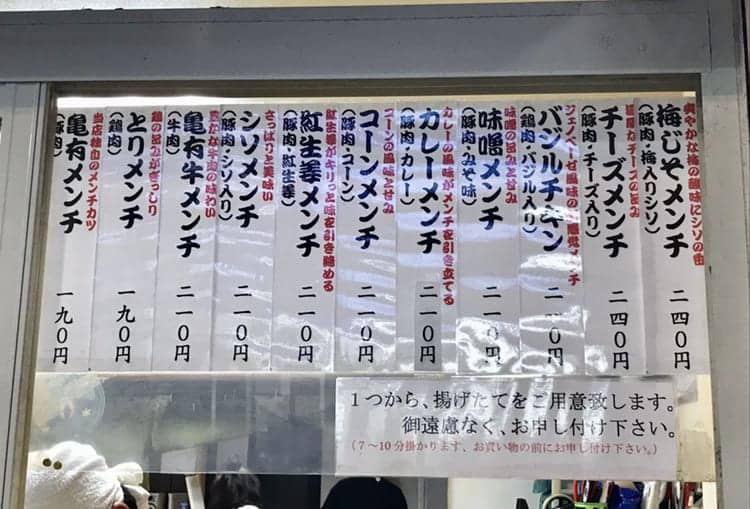 爽やかな梅の酸味にシソの香
梅じそメンチ
(豚肉・梅入りシソ)
二四〇円
濃厚なチーズの旨み
チーズメンチ
(豚肉・チーズ入り)
二四〇円
ジェノベーゼ風味の
メンチ
バジルチキン
(鶏肉・バジル入り)
二一〇円
味噌の旨みと甘み
味噌メンチ
(豚肉・みそ味)
二一〇円
カレーの風味がメンチを引き立てる
カレーメンチ
(豚肉・カレー)
二一〇円
コーンの風味と甘み
コーンメンチ
(豚肉・コーン)
二一〇円
紅生姜がキリっと味を引き締める
紅生姜メンチ
(豚肉・紅生姜)
二一〇円
さっぱりと美味い
シソメンチ
(豚肉・シソ入り)
二一〇円
豊かな牛肉の味わい
亀有牛メンチ
(牛肉)
二一〇円
鶏の旨みがぎっしり
とりメンチ
(鶏肉)
一九〇円
当店独自のメンチカツ
亀有メンチ
(豚肉)
一九〇円
1つから、揚げたてをご用意致します。
御遠慮なく、お申し付け下さい。
(7～10分掛かります、お買い物の前にお申し付け下さい。)